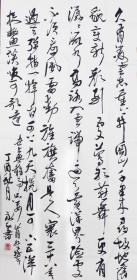 久有凌云志重上井冈山千里来寻故地旧
貌变新颜到处莺歌燕舞更有
潺潺流水高路入云端过了黄洋界险处
不须看风雷动旌旗奋是人寰三十八年
过去弹指一挥间可上九天揽月可下五洋
捉鳖谈笑凯歌还世上无难事只要肯登攀
丁酉月